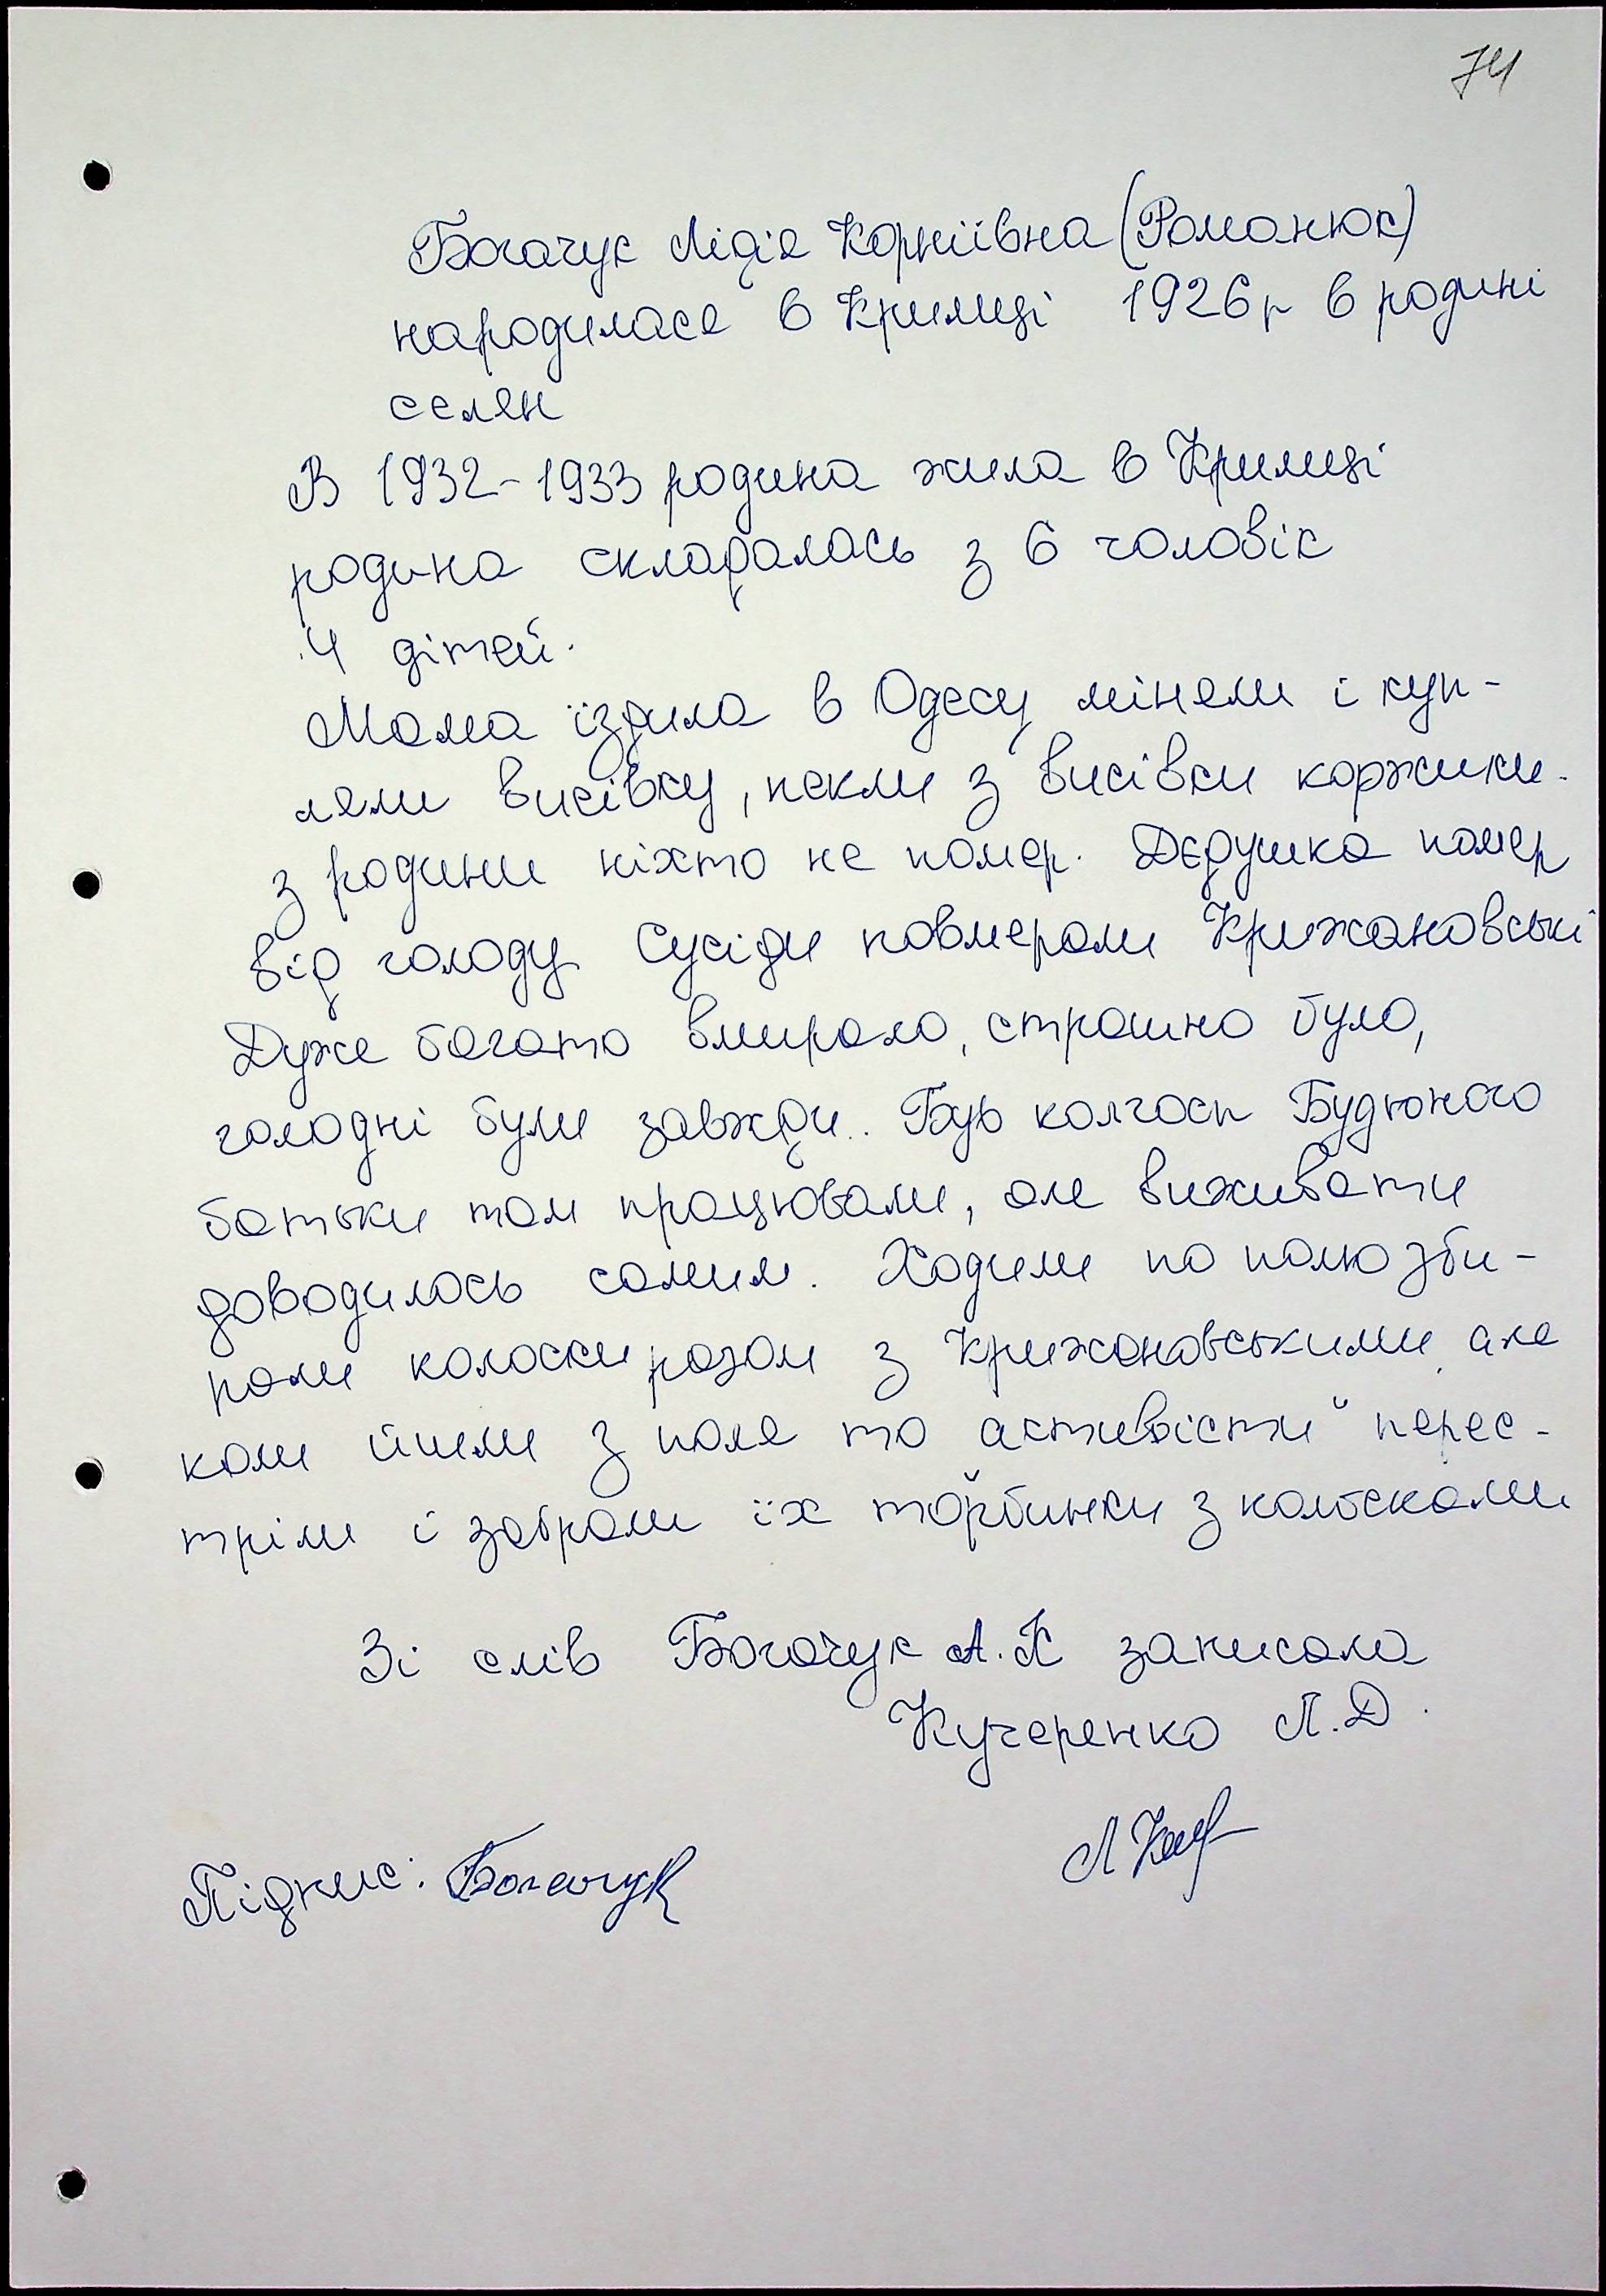 74
Богачук Лідія Корніївна (Романюк)
народилася в Кримці 1926р в родині
селян
В 1932-1933 родина жила в Кримці
родина складалась з 6 чоловік
4 дітей.
Мама їздила в Одесу міняли і куп-
ляли висівку, пекли з висівки коржики.
з родини ніхто не помер. Дєдушка помер
від голоду Сусіди повмерали Крижановські
Дуже багато вмирало, страшно було,
голодні були завжди.. Був колгосп Будюного
батьки там працювали, але виживати
доводилось самим. Ходили по полю зби-
рали колоски разом з Крижановськими але
коли йшли з поля то активісти" перес-
тріли і забрали їх торбинки з колосками
Зі слів Богачук Л.К записала
Кучеренко Л.Д.
Підпис: Богачук